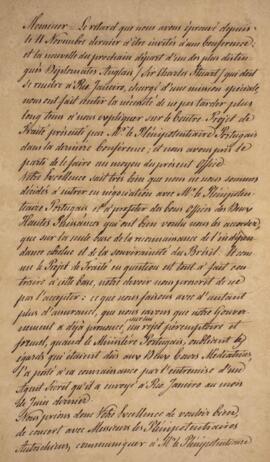 Monsieur – Le retard que nous avons éprouvé depuis
le 11 Novembre dernier d'être invités à une Conférence;
et la nouvelle du prochain départ d'un des plus distin-
gués Diplomates Anglais (Sir Charles Stuart) qui doit
se rendre à Rio Janeiro, chargé d'une mission spéciale,
nous ont fait sentir la nécessité de ne pas tarder plus
long tems à nous expliquer sur le Contre Projet de
Traité présenté par Mr. le Plénipotentiaire Portugais
dans la dernière Conférence; et nous avons pris le
parti de le faire au moyen du présent Office
Votre Excellence sait très bien que nous ne nous sommes
décidés à entrer en négociation avec Mr. le Plénipoten-
tiaire Portugais et à profiter des bons Offices des Deux
Hautes Puissances qui ont bien voulu nous les accorder,
que sur la seule base de la reconnaissance de l'indépen-
dance absolue et de la souveraineté du Brésil. Et com-
me le Projet de Traité en question est tout à fait con-
traire à cette base, notre devoir nous prescrit de ne
pas l'accepter: ce que nous faisons avec d'autant
plus d'assurance, que nous savons que notre Gouver-
nement a déjà prononcé un rejet péremptoire et
formel, quand le Ministère Portugais, oubliant les
égards qui étaient dûs aux Deux Cours Médiatrices,
l'a porté à sa connaissance par l'entremise d'un
Agent Secret qu'il a envoyé à Rio Janeiro au mois
de Juin dernier
Nous prions donc Votre Excellence de vouloir bien,
de concert avec Messieurs les Plénipotentiaires
Autrichiens, communiquer à Mr. le Plénipotentiaire